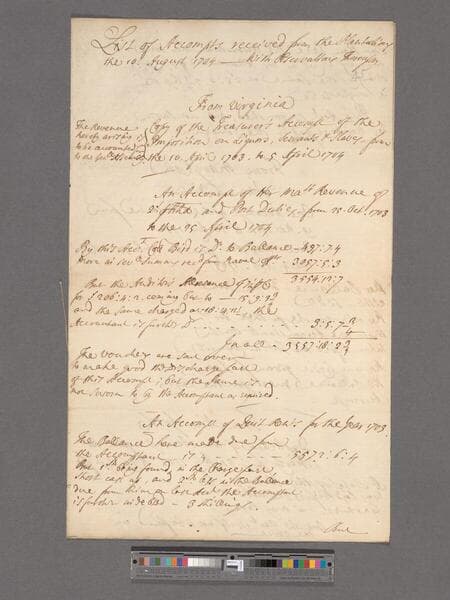 List of Accompts received from the Plantations
the 10th August 1704 — With Observations thereon
From Virginia
The Revenue
hereby arising is
to be accounted
to the
Copy of the Treasurer's Accompt of the
Imposition on Liquors, Servants & Slaves from
the 10 April 1703 to 5 April 1704
An Accompt of Her Maty Revenue of
2s and Port Duties from 25 Oct. 1703
to the 25 April 1704
By this Acct. Col Bird is Dr. to Ballance — 497:7:4
more in sevll Summs recd from Naval Offrs — 3057:5:3
3554:12:7
But the Auditors Allowance of
for £206:4:2 coming but to — 15:9:2
and the same charged at 18:4:11 the
Accomptant is further Dr — 3:5:7 3/4
In all — 3557:18:2 3/4
The Vouchers are sent over
to make good the Discharge part
of this Accompt; but the same is
not Sworn to by the Accomptant as required.
An Accompt of Quit Rents for the Year 1703.
The Ballance here made due from
the Accomptant is — 5572:6:4
But being found, in the Charge part
Short cast up, and in the Ballance
due from him on last Acct. the Accomptant
is further indebted — 3 Shillings.